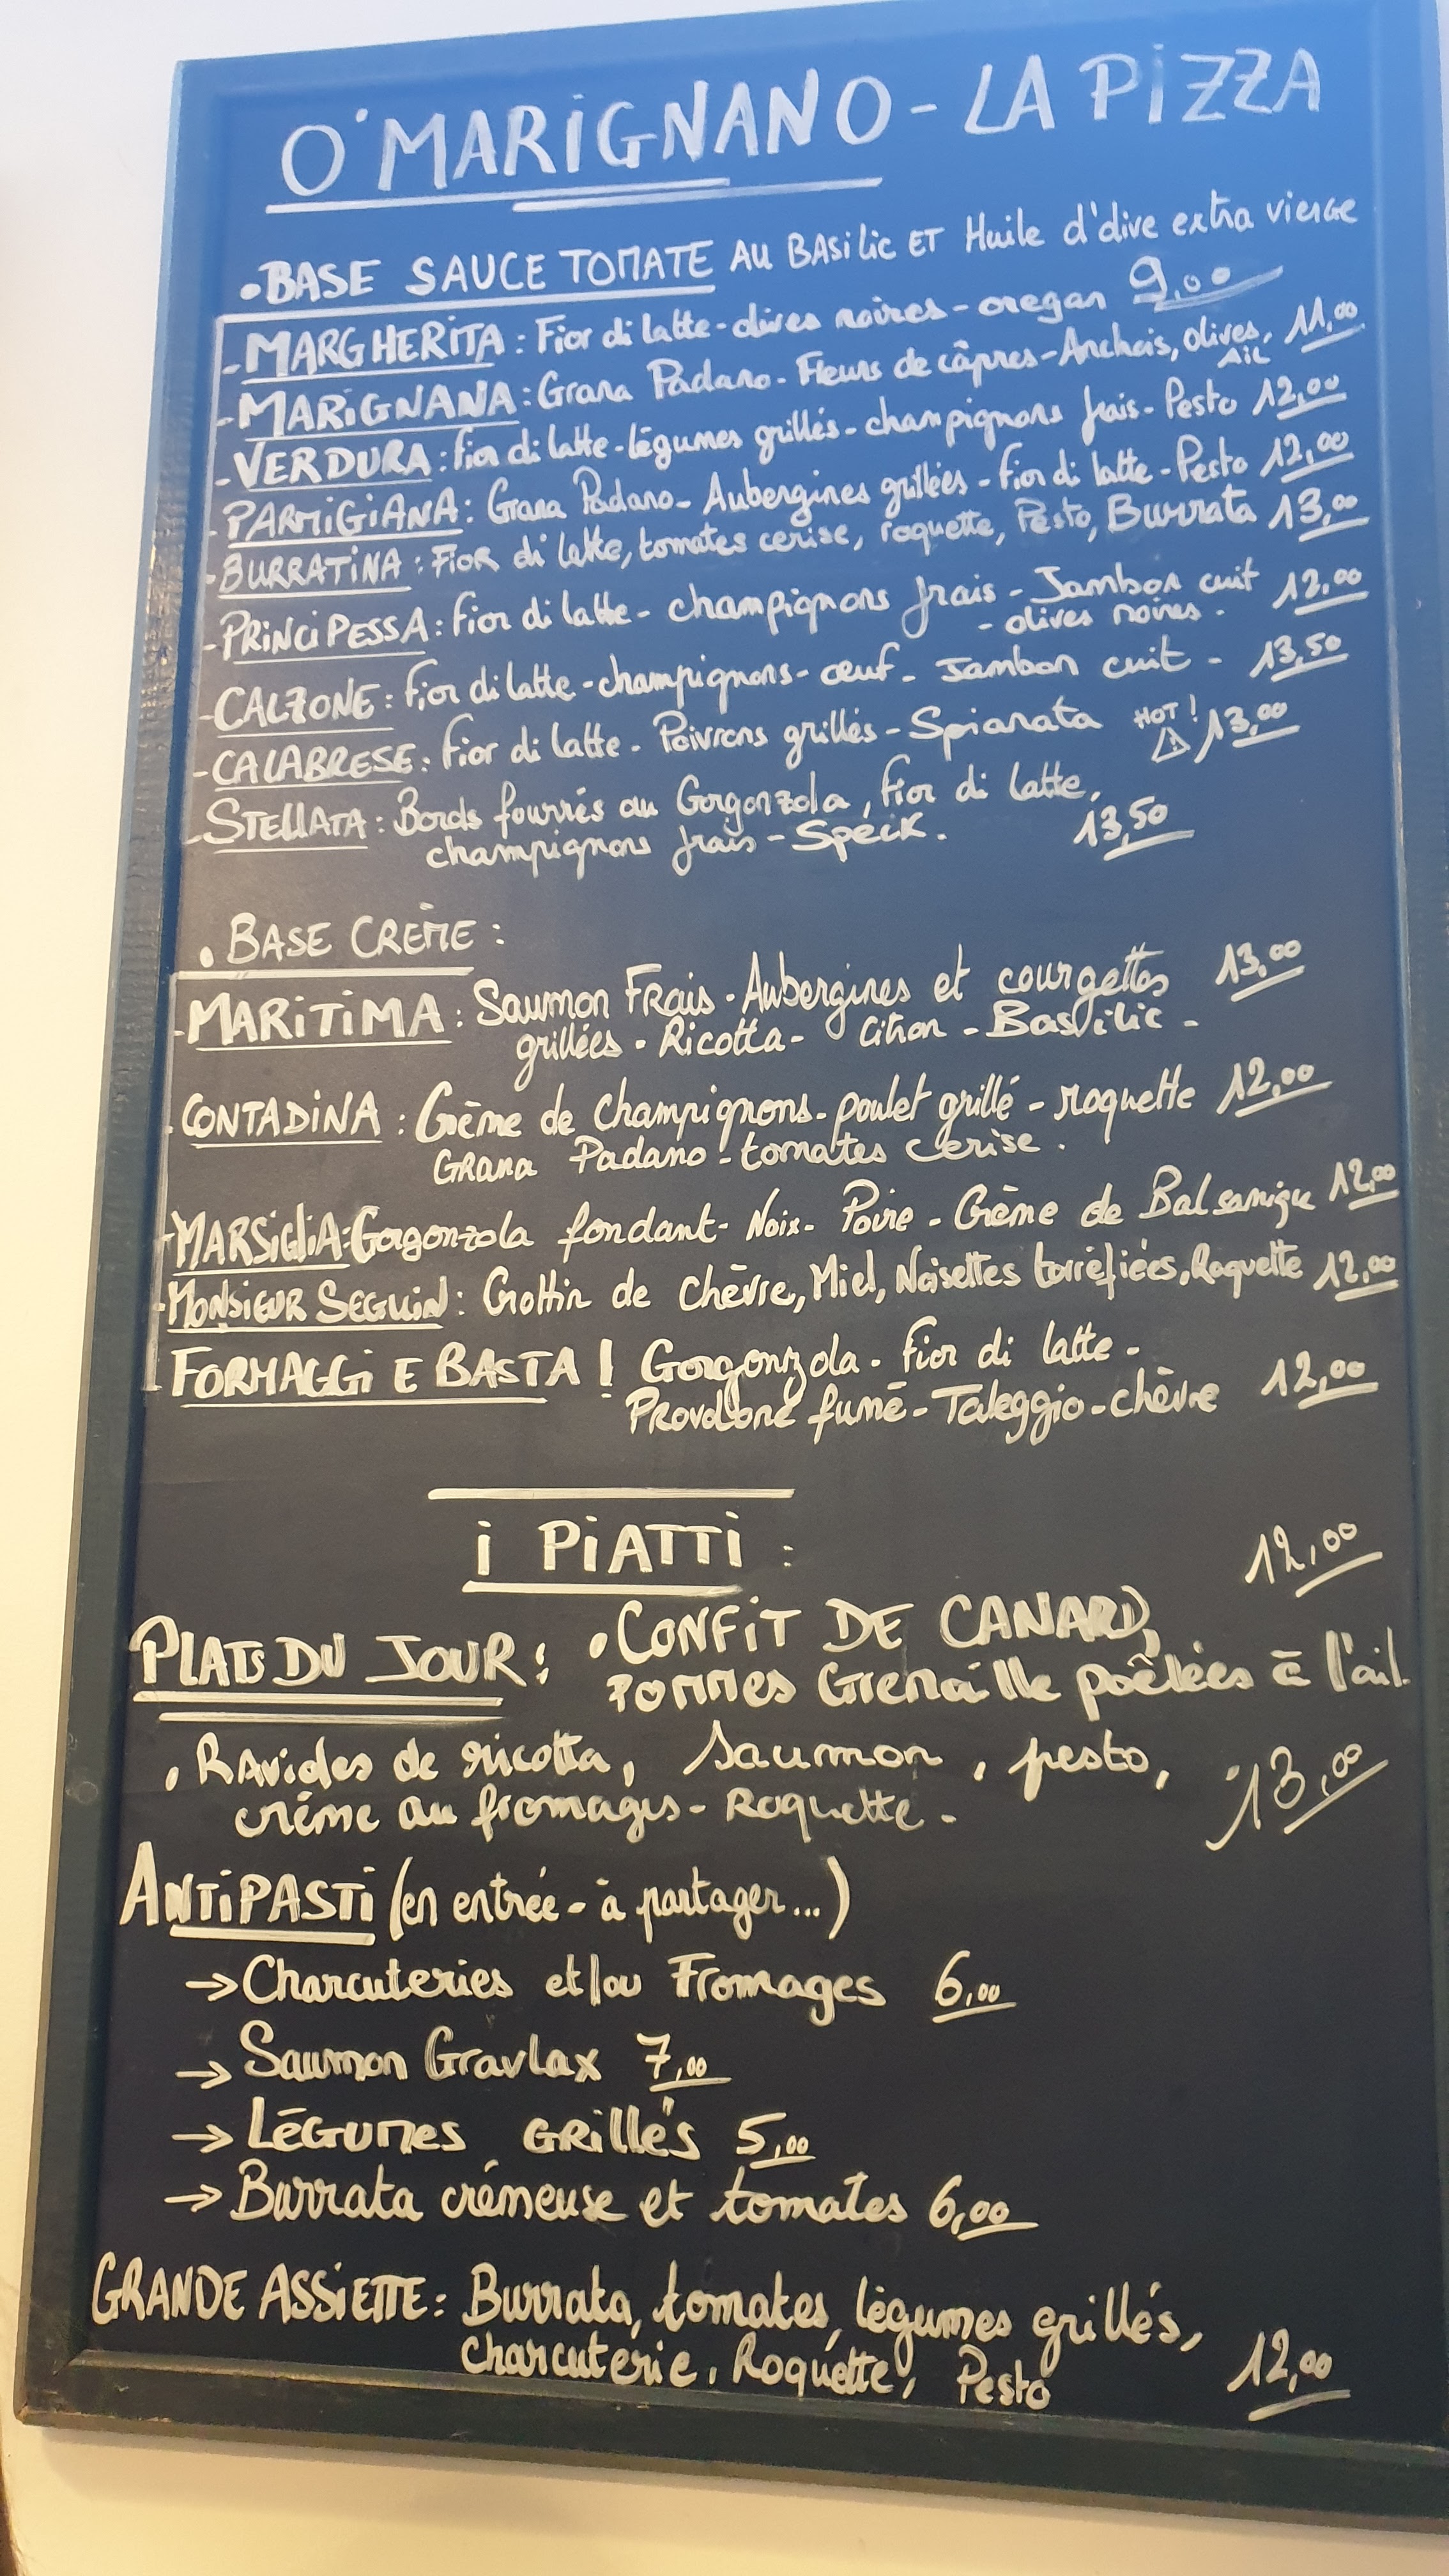 O'MARIGNANO - LA PIZZA
• BASE SAUCE TOMATE AU BASILIC ET Huile d'olive extra vierge
- MARGHERITA : Fior di latte - olives noires - oregan 9,00
- MARIGNANA : Grana Padano - Fleurs de câpres - Anchois, olives, Ail 11,00
- VERDURA : fior di latte - légumes grillés - champignons frais - Pesto 12,00
- PARMIGIANA : Grana Padano - Aubergines grillées - fior di latte - Pesto 12,00
- BURRATINA : FIOR di latte, tomates cerise, roquette, Pesto, Burrata 13,00
- PRINCIPESSA : fior di latte - champignons frais - Jambon cuit 12,00
- olives noires -
- CALZONE : fior di latte - champignons - œuf - Jambon cuit - 13,50
- CALABRESE : fior di latte - Poivrons grillés - Spianata HOT ! 13,00
- STELLATA : Bords fourrés au Gorgonzola, fior di latte,
champignons frais - Speck. 13,50
• BASE CRÈME :
- MARITIMA : Saumon Frais - Aubergines et courgettes 13,00
grillées - Ricotta - Citron - Basilic -
- CONTADINA : Crème de Champignons - poulet grillé - roquette 12,00
GRana Padano - tomates cerise.
- MARSIGLIA : Gorgonzola fondant - Noix - Poire - Crème de Balsamique 12,00
- MONSIEUR SEGUIN : Crottin de Chèvre, Miel, Noisettes torréfiées, Roquette 12,00
- FORMAGGI E BASTA ! Gorgonzola - fior di latte -
PRovolone fumé - Taleggio - chèvre 12,00
i PIATTI :
12,00
PLATS DU JOUR : • CONFIT DE CANARD,
POMMES Grenaille poêlées à l'ail.
• Ravioles de ricotta, saumon, pesto,
crème au fromages - Roquette - 13,00
ANTIPASTI (en entrée - à partager...)
→ Charcuteries et/ou Fromages 6,00
→ Saumon Gravlax 7,00
→ LÉGUMES GRILLÉS 5,00
→ Burrata crémeuse et tomates 6,00
GRANDE ASSIETTE : Burrata, tomates, légumes grillés,
charcuterie, Roquette, Pesto 12,00